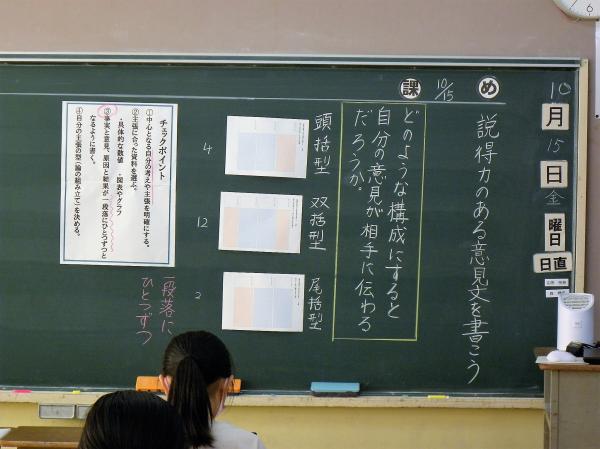 10
月
15
日
金
曜日
日直
め
10/15
課
説得力のある意見文を書こう
どのような構成にすると
自分の意見が相手に伝わる
だろうか。
頭括型
双括型
尾括型
4
12
2
チェックポイント
①中心となる自分の考えや主張を明確にする。
②主張に合った資料を選ぶ。
・具体的な数値 ・図表やグラフ
③事実と意見、原因と結果が一段落にひとつずつと
なるように書く。
④自分の主張の型(論の組み立て)を決める。
一段落に
ひとつずつ
6